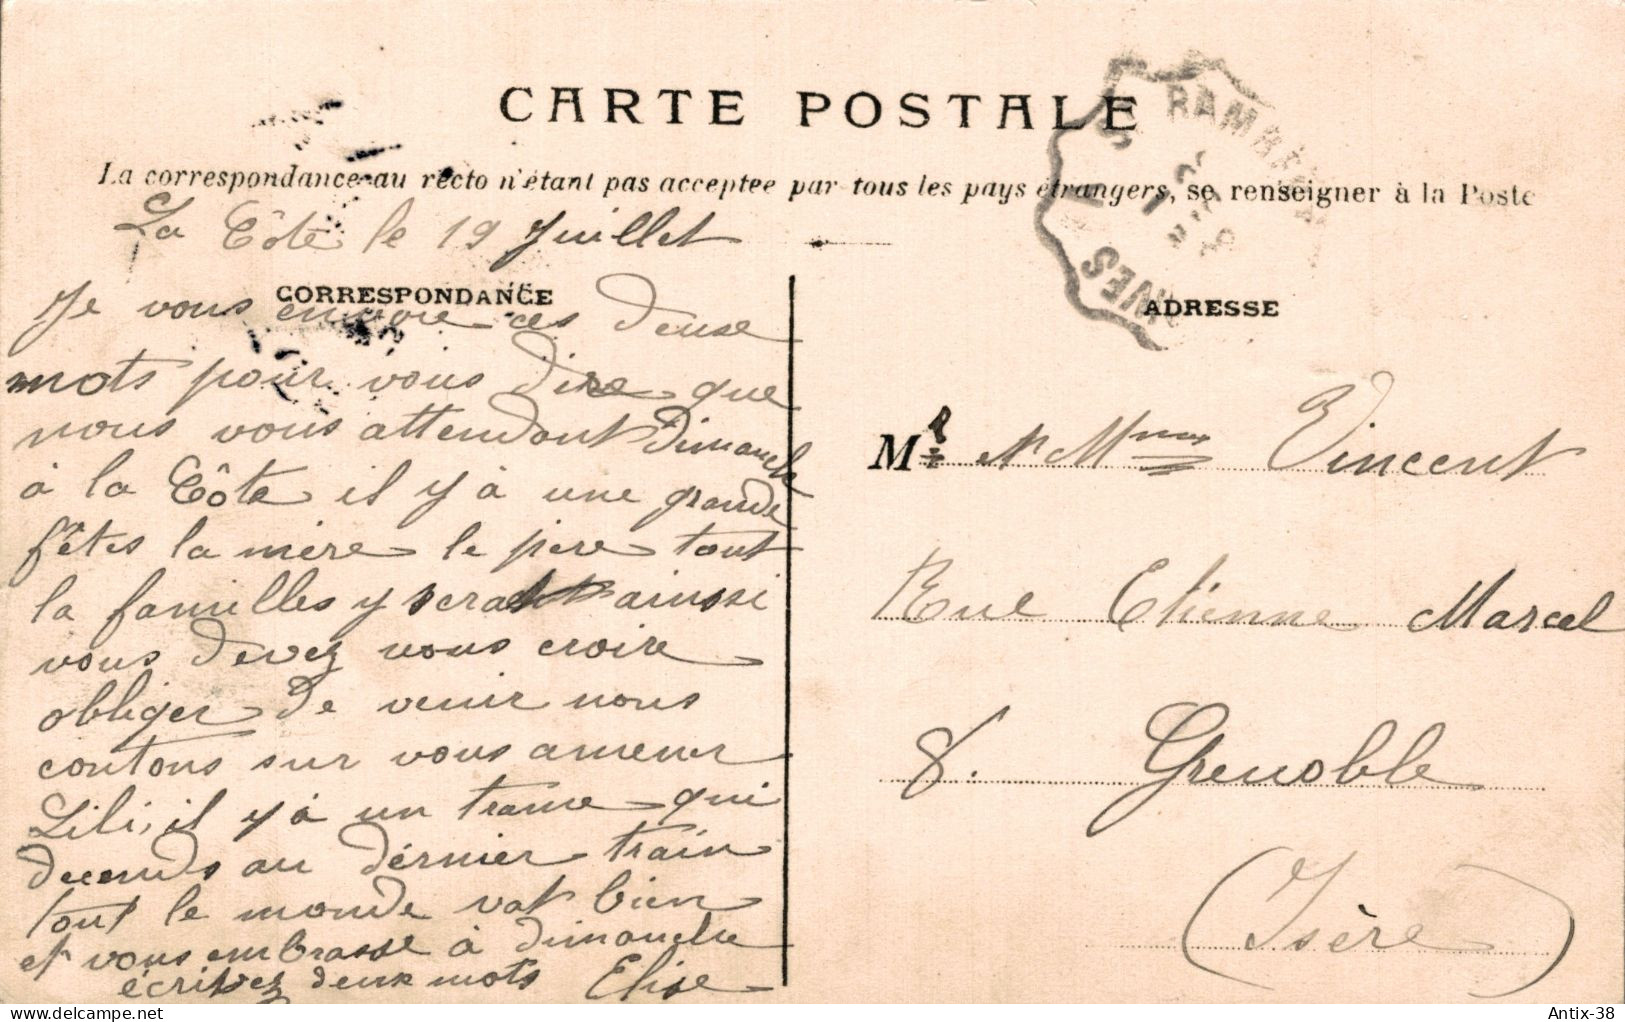 CARTE POSTALE
La correspondance au recto n'étant pas acceptée par tous les pays étrangers, se renseigner à la Poste
RAMBERT
RIVES
La Côte le 19 Juillet
CORRESPONDANCE
Je vous envoie ces deuse
mots pour vous dire que
nous vous attendont Dimanche
à la Côte il y à une grande
fêtes la mère le père tout
la familles y serat ainssi
vous devez vous croire
obliger de venir nous
contons sur vous amener
Lili, il y à un trame qui
decends au dérnier train
tout le monde vat bien
et vous embrasse à dimanche
écrivez deux mots Elise
ADRESSE
Mr et Mme Vincent
Rue Etienne Marcel
8. Grenoble
(Isère)
delcampe.net
Antix-38